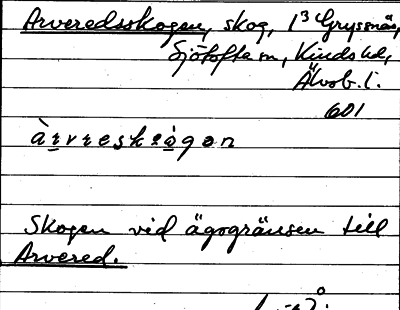 Arveredsskogen, skog, 1³ Gryssnäs,
Sjötofta sn, Kinds hd,
Älvsb. l.
601
àrvreskògen
Skogen vid ägogränsen till
Arvered.